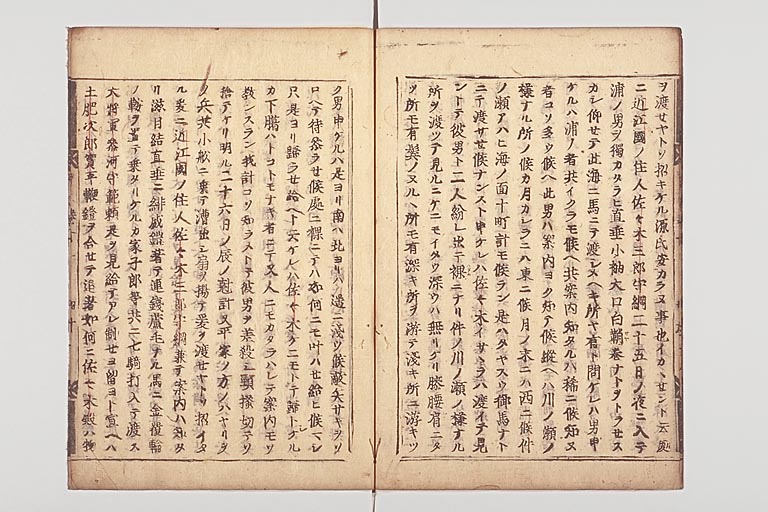 ヲ渡セヤトソ招キケル源氏安カラヌ事也イカヽセント云処
ニ近江國ノ住人佐々木三郎守綱二十五日ノ夜ニ入テ
浦ノ男ヲ獨カタラヒ直垂小袖大口白鞘巻ナトヲトラセス
カシ仰セテ此海ニ馬ニテ渡シヌヘキ所ヤ有ト問ケレハ男申
ケルハ浦ノ者共イクラモ候ヘ共案内知タルハ稀ニ候知ヌ
者コソ多ウ候ヘ此男ハ案内ヨク知テ候縦ヘハ川ノ瀬ノ
様ナル所ノ候カ月カシラニハ東ニ候月ノ末ニハ西ニ候件
ノ瀬アハヒ海ノ面十町計モ候ラン是ハタヤスウ御馬ナト
ニテ渡サセ候ナンスト申ケレハ佐々木イサヽラハ渡イテ見
ントテ彼男ト二人紛レ出テ裸ニナリ件ノ川ノ瀬ノ様ナル
所ヲ渡ツテ見ルニケニモイタウ深ウハ無リケリ膝腰肩ニタ
ツ所モ有鬢ノヌルヽ所モ有深キ所ヲ游テ淺キ所ニ游キツ
ク男申ケルハ是ヨリ南ハ北ヨリハ遥ニ淺ウ候敵矢サキヲソ
ロヘテ待参ラセ候處ニ裸ニテハ如何ニモ叶ハセ給ヒ候マシ
只是ヨリ歸ラセ給ヘト云ケレハ佐々木ケニモトテ歸ケル
カ下臈ハトコトモナキ者ニテ又人ニモカタラハレテ案内モヲシ
教ンスラン我計コソ知ラメトテ彼男ヲ差殺シ頸掻切テソ
捨テケリ明ル二十六日ノ辰ノ刻計又平家ノ方ノハヤリヲ
ノ兵共小船ニ乗テ漕出シ扇ヲ揚テ爰ヲ渡セヤトソ招イタ
ル爰ニ近江國ノ住人佐々木三郎守綱兼テ案内ハ知タ
リ滋目結直垂ニ緋威鎧著テ連錢蘆毛ナル馬ニ金覆輪
ノ鞍ヲ置テ乗タリケルカ家子郎等共ニ七騎打入テ渡ス
大將軍参河守範頼是ヲ見給テアレ制セヨ留ヨト宣ヘハ
土肥次郎實平鞭鐙ヲ合セテ追著如何ニ佐々木殿ハ物